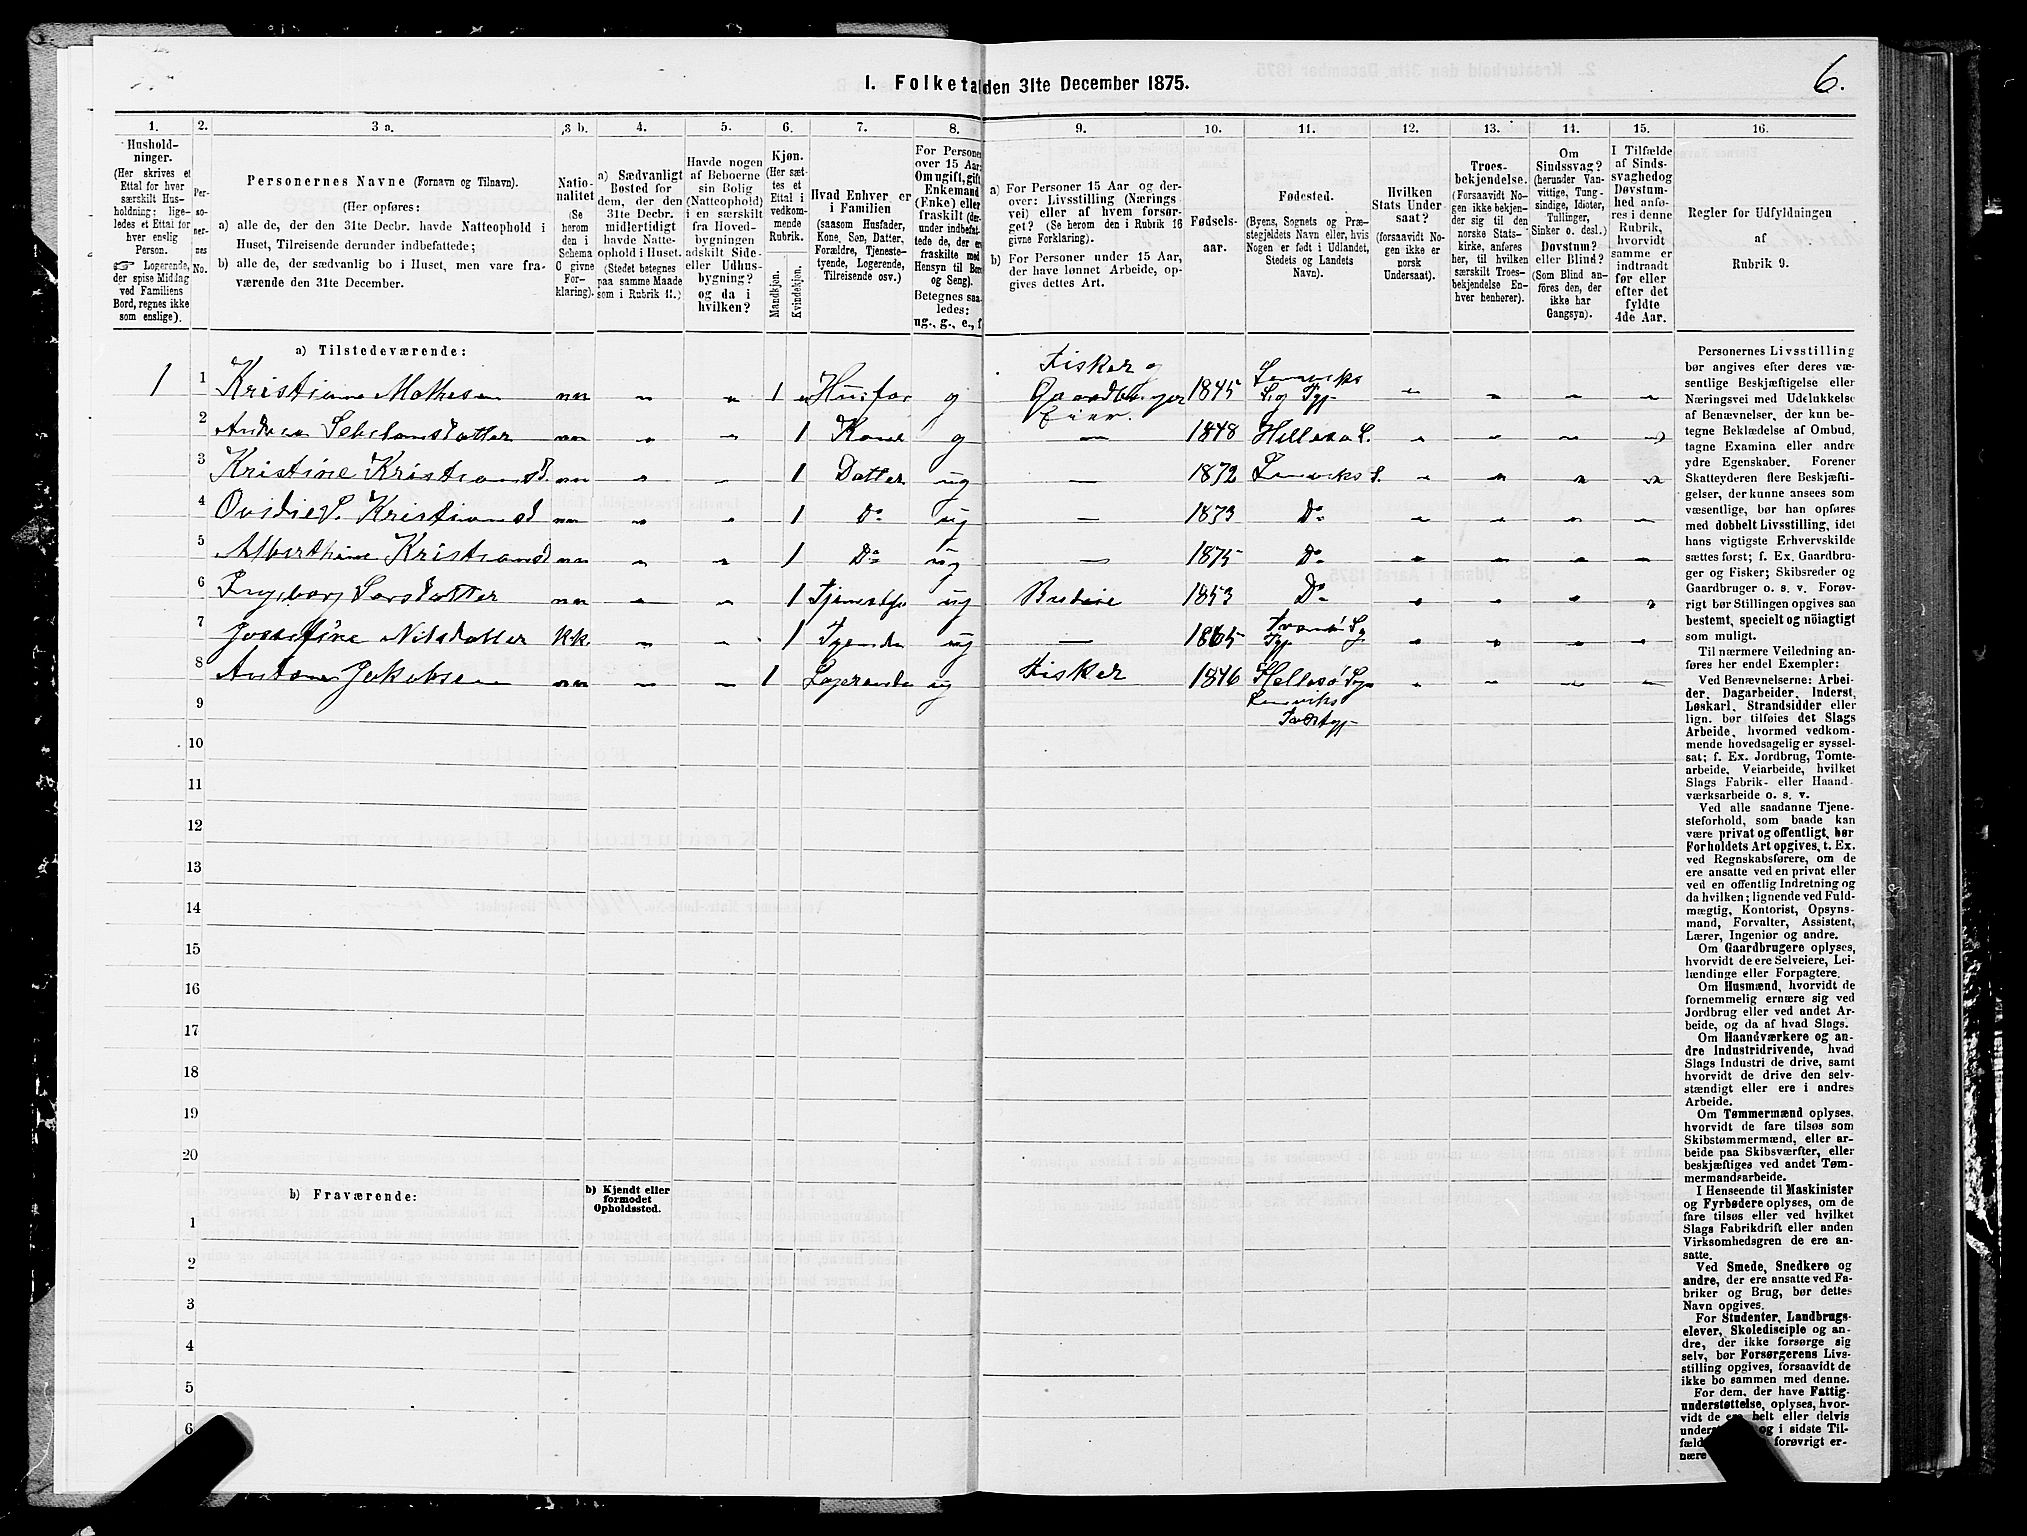 6.
I. Folketal den 31te December 1875.
1. 2. 3 a. 3 b. 4. 5. 6. 7. 8. 9. 10. 11. 12. 13. 14. 15. 16.
Hushold-
ninger.
(Her skrives et
Ettal for hver
særskilt Hus-
holdning; lige-
ledes et Ettal for
hver enslig
Person.
☞ Logerende,
der spise Middag
ved Familiens
Bord, regnes ikke
som enslige).
Per-
so-
ner-
nes
No.
Personernes Navne (Fornavn og Tilnavn).
(Her opføres:
a) alle de, der den 31te Decbr. havde Natteophold i
Huset, Tilreisende derunder indbefattede;
b) alle de, der sædvanlig bo i Huset, men vare fra-
værende den 31te December.
Natio-
nalitet
(Se
herom
den i
Schema
C givne
For-
klaring).
a) Sædvanligt
Bosted for
dem, der den
31te Decbr.
midlertidigt
havde Natte-
ophold i Huset.
(Stedet betegnes
paa samme Maade
som i Rubrik 11.)
Havde nogen
af Beboerne
sin Bolig
(Natteophold)
i en særskilt
fra Hoved-
bygningen
adskilt Side-
eller Udhus-
bygning?
og da i
hvilken?
Kjøn.
(Her sæt-
tes et
Ettal i
vedkom-
mende
Rubrik.
Mandkjøn.
Kvindekjøn.
Hvad Enhver er
i Familien
(saasom Husfader,
Kone, Søn, Datter,
Forældre, Tjeneste-
tyende, Logerende,
Tilreisende osv.)
For Personer
over 15 Aar:
Om ugift, gift,
Enkemand
(Enke) eller
fraskilt (der-
under indbefat-
tede de, der er
fraskilte med
Hensyn til Bord
og Seng).
Betegnes saa-
ledes:
ug., g., e., f
a) For Personer 15 Aar og der-
over: Livsstilling (Nærings
vei) eller af hvem forsør-
get? (Se herom den i Rubrik 16
givne Forklaring).
b) For Personer under 15 Aar,
der have lønnet Arbeide, op-
gives dettes Art.
Fødsels-
aar.
Fødested.
(Byens, Sognets og Præ-
stegjeldets Navn eller, hvis
Nogen er født i Udlandet,
Stedets og Landets
Navn).
Hvilken
Stats Under
saat?
(forsaavidt No-
gen ikke er
norsk
Undersaat).
Troes-
bekjendelse.
(Forsaavidt No-
gen ikke bekjen-
der sig til den
norske Stats-
kirke, anføres
her, til hvilken
særskilt Troes-
bekjendelse En-
hver henhører).
Om
Sindssvag?
(herunder Van-
vittige, Tung-
sindige, Idioter,
Tullinger,
Sinker o. desl.)
Døvstum?
eller Blind?
(Som Blind an-
føres den, der
ikke har
Gangsyn).
I Tilfælde
af Sinds-
svaghed og
Døvstum-
hed anfø-
res i denne
Rubrik,
hvorvidt
samme er
indtraadt
før eller
efter det
fyldte
4de Aar.
Regler for Udfyldningen
af
Rubrik 9.
a) Tilstedeværende:
1 1 Kristian Mathesen nn 1 Husfar g Fisker og Gaardbruger Eier. 1845 Lenviks S. og Pgj.
2 Andrea nn 1 Kone g 1848 Hillesø S.
3 Kristine Kristiansd. nn 1 Datter ug 1872 Lenviks S.
4 Ovidie S. Kristiansd nn 1 Do ug 1873 Do
5 Alberthine Kristiansd nn 1 Do ug 1875 Do
6 Ingeborg Larsdatter nn 1 ug Budeie 1853 Do
7 Josefine Nilsdatter kk 1 Tyende ug 1865
8 Anton Jakobsen nn 1 Logerende ug Fisker 1846 Hellesø Lenviks
9
10
11
12
13
14
15
16
17
18
19
20
b) Fraværende:
b) Kjendt eller
formodet
Opholdssted.
1
2
3
4
5
6
Personernes Livsstilling
bør angives efter deres væ-
sentlige Beskjæftigelse eller
Næringsvei med Udelukkelse
af Benævnelser, der kun be-
tegne Beklædelse af Ombud,
tagne Examina eller andre
ydre Egenskaber. Forener
Skatteyderen flere Beskjæfti-
gelser, der kunne ansees som
væsentlige, bør han opføres
med dobbelt Livsstilling, idet
hans vigtigste Erhvervskilde
sættes først; f. Ex. Gaardbru-
ger og Fisker; Skibsreder og
Gaardbruger o. s. v. Forøv-
rigt bør Stillingen opgives saa
bestemt, specielt og nöiagtigt
som muligt.
Til nærmere Veiledning an-
føres her endel Exempler:
Ved Benævnelserne: Arbei-
der, Dagarbeider, Inderst,
Løskarl, Strandsidder eller
lign. bør tilføies det Slags
Arbeide, hvormed vedkom-
mende hovedsagelig er syssel-
sat; f. Ex. Jordbrug, Tomte-
arbeide, Veiarbeide, hvilket
Slags Fabrik- eller Haand-
værksarbeide o. s. v.
Ved alle saadanne Tjene-
steforhold, som baade kan
være privat og offentligt, bør
Forholdets Art opgives, t. Ex.
ved Regnskabsførere, om de
ere ansatte ved en privat eller
ved en offentlig Indretning og
da hvilken; lignende ved Fuld-
mægtig, Kontorist, Opsyns-
mand, Forvalter, Assistent,
Lærer, Ingeniør og andre.
Om Gaardbrugere oplyses,
hvorvidt de ere Selveiere, Lei-
lændinge eller Forpagtere.
Om Husmænd, hvorvidt de
fornemmelig ernære sig ved
Jordbrug eller ved andet Ar-
beide, og da af hvad Slags.
Om Haandværkere og an-
dre Industridrivende, hvad
Slags Industri de drive, samt
hvorvidt de drive den selv-
stændigt eller ere i andres
Arbeide.
Om Tømmermænd oplyses,
hvorvidt de fare tilsøs som
Skibstømmermænd, eller ar-
beide paa Skibsværfter, eller
beskjæftiges ved andet Tøm-
mermandsarbeide.
I Henseende til Maskinister
og Fyrbødere oplyses, om de
fare tilsøs eller ved hvilket
Slags Fabrikdrift eller anden
Virksomhedsgren de ere an-
satte.
Ved Smede, Snedkere og
andre, der ere ansatte ved Fa-
briker og Brug, bør dettes
Navn opgives.
For Studenter, Landbrugs-
elever, Skoledisciple og an-
dre, der ikke forsørge sig
selv, bør Forsørgerens Livs-
stilling opgives, forsaavidt de
ikke bo sammen med denne.
For dem, der have Fattig-
understøttelse, oplyses, hvor-
vidt de ere helt eller delvis
og i sidste Til-
forøvrigt er-
nære